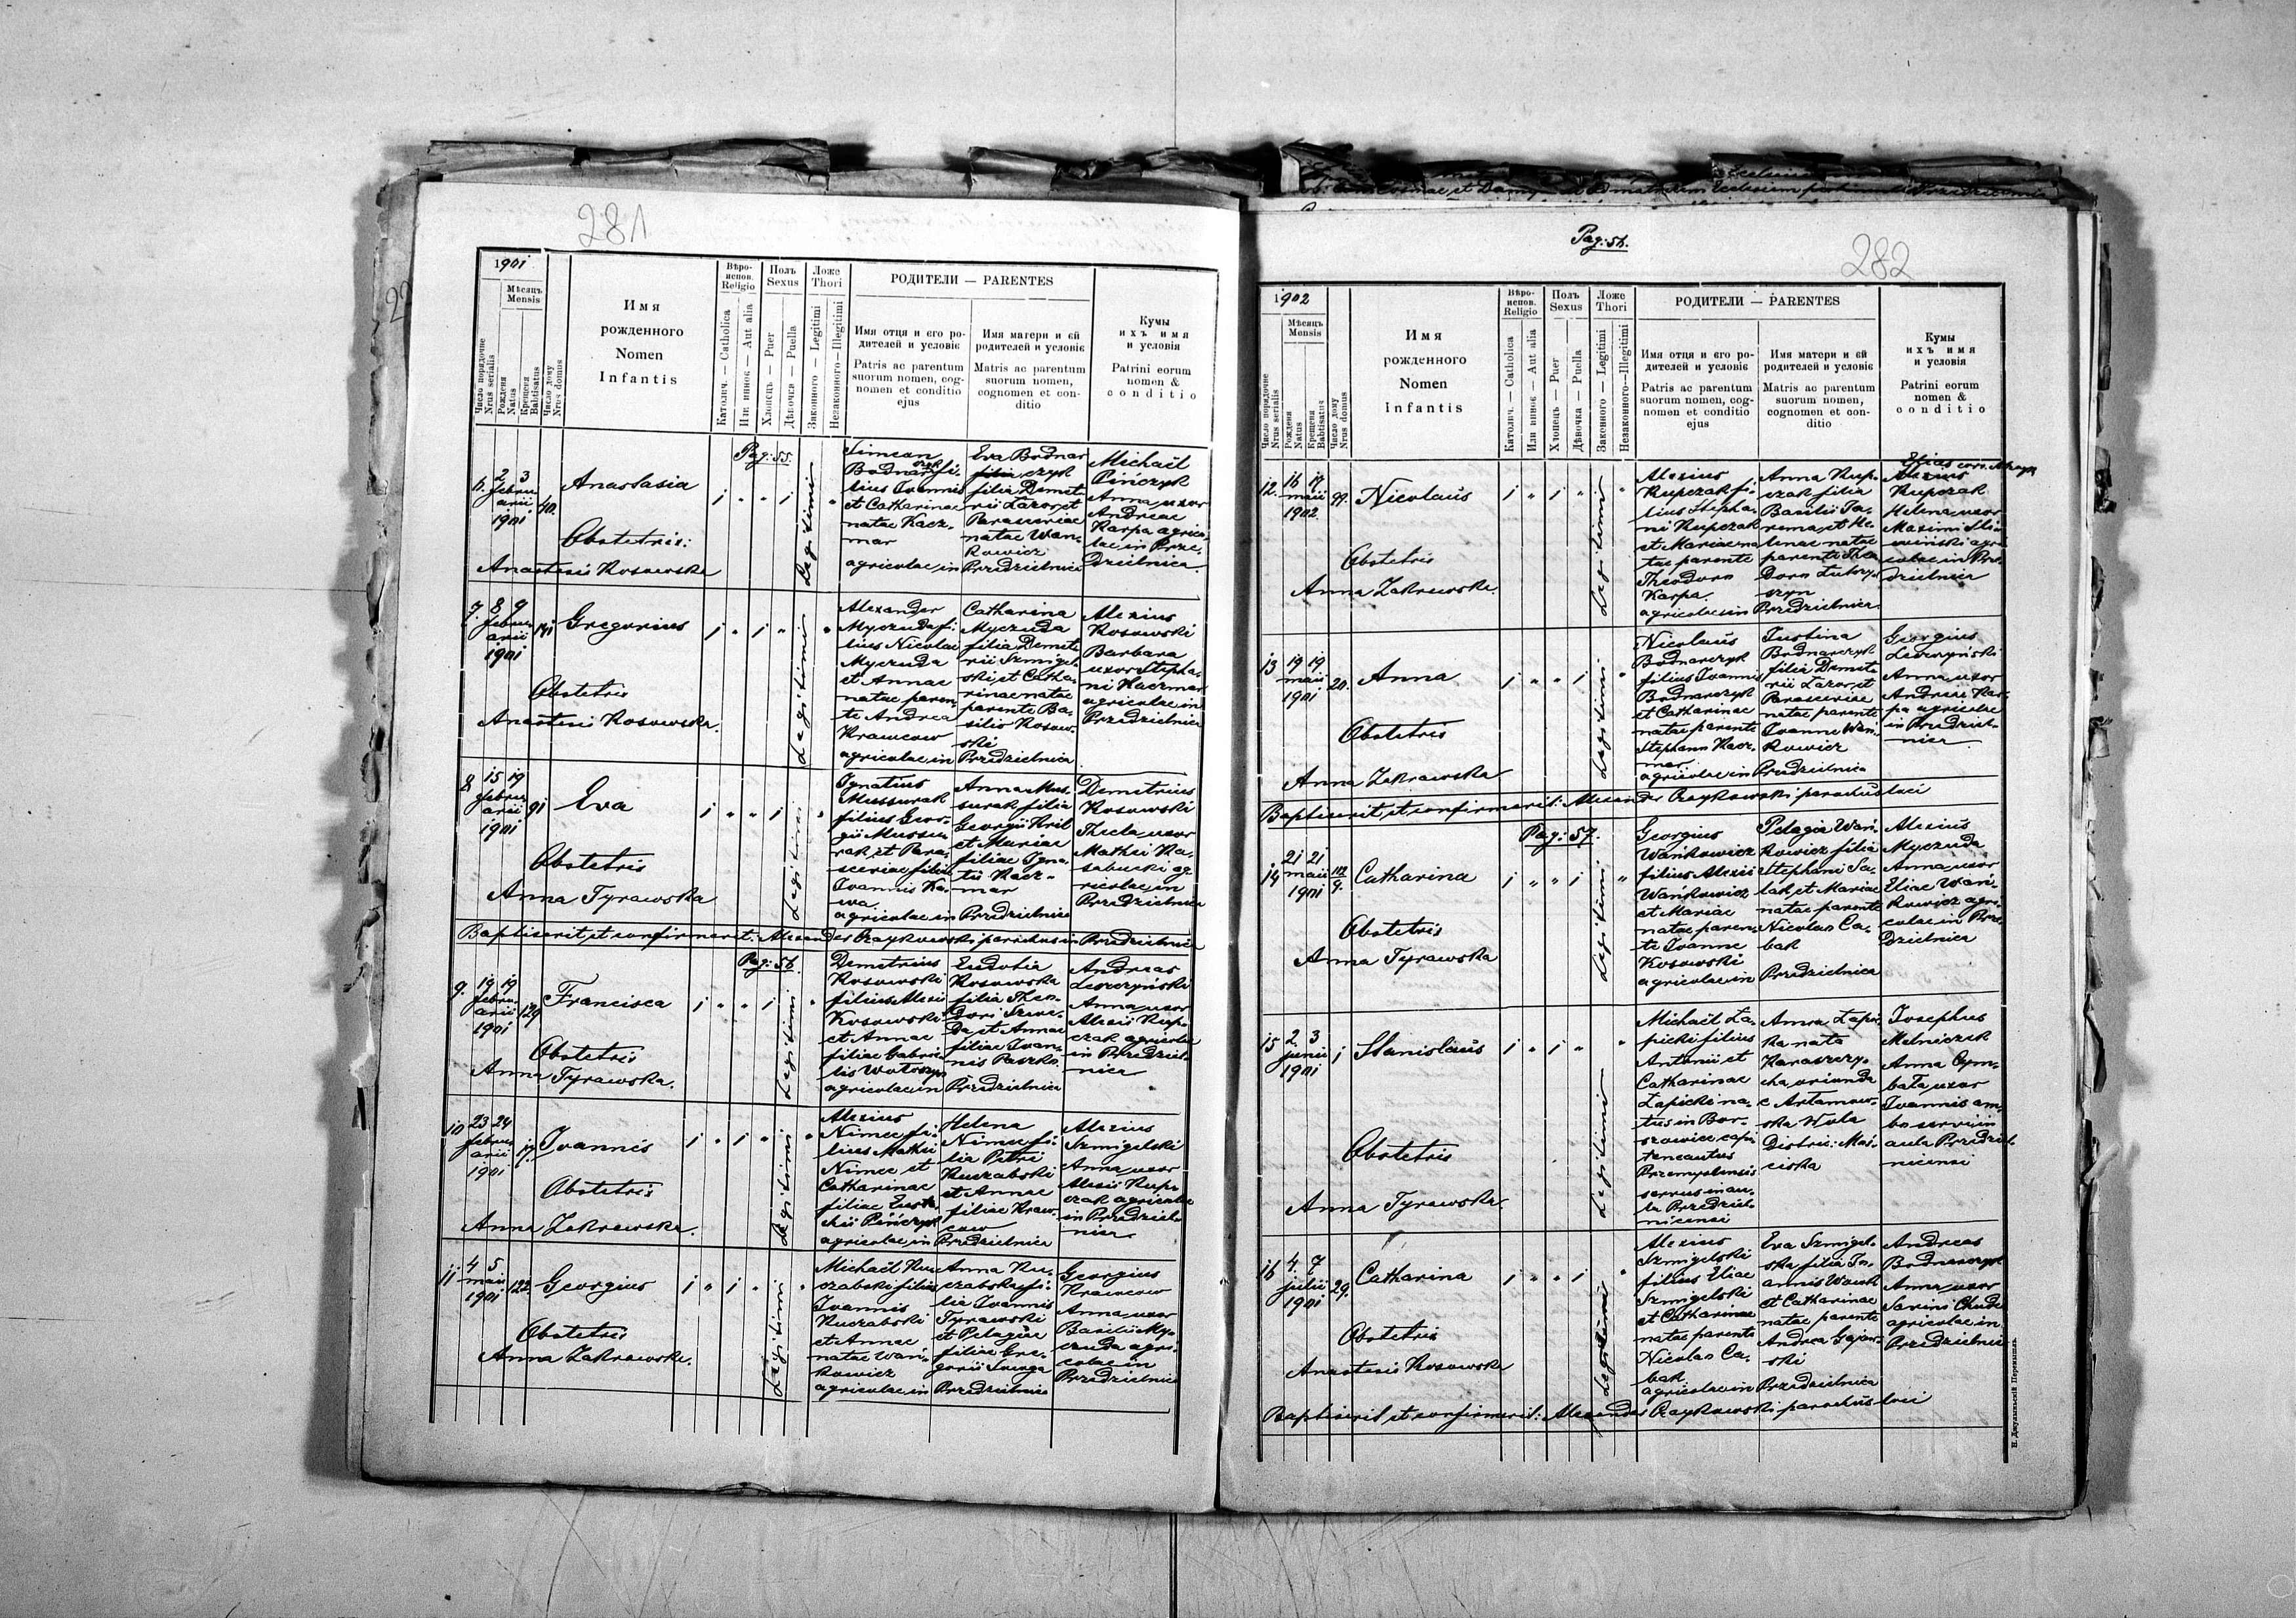 281
1901
Мѣсяцъ
Mensis
Число порядочне
Nrus serialis
Рождени
Natus
Крещенія
Babtisatus
Число дому
Nrus domus
Имя
рожденного
Nomen
Infantis
Вѣро-
испов.
Religio
Католич. — Catholica
Или иннос — Aut alia
Полъ
Sexus
Хлопець — Puer
Дѣвочка — Puella
Ложе
Thori
Законного — Legitimi
Незаконного — Illegitimi
РОДИТЕЛИ — PARENTES
Имя отця и єго ро-
дителей и условіє
Patris ac parentum
suorum nomen, cog-
nomen et conditio
ejus
Имя матери и єй
родителей и условіє
Matris ac parentum
suorum nomen,
cognomen et con-
ditio
Кумы
ихъ имя
и условія
Patrini eorum
nomen &
conditio
Pag: 55.
6. 2 3
Febru-
arii
1901
40.
Anastasia
Obstetrix:
Anastasia Kosowska
Legitimi
Simeon
Bodnarczyk fi-
lius Ioannis
et Catharinae
natae Kacz-
mar
agricolae in
Eva Bodnar
czyk
filia Demet
rii Lazor et
Parasceviae
natae Wań-
kowicz
Przedzielnica
Michaël
Pińczyk
Anna uxor
Andreae
Karpa agrico-
lae in Prze-
dzielnica
7. 8 9
Febru-
arii
1901
141
Gregorius
Obstetrix
Anastasia Kosowska.
Legitimi
Alexander
Myczuda fi-
lius Nicolai
Myczuda
et Annae
natae paren-
te Andrea
Krawcow
agricolae in
Catharina
Myczuda
filia Demet-
rii Szmigel-
ski et Catha-
rinae natae
parente Ba-
silio Kosow-
ski
Przedzielnica
Alexius
Kosowski
Barbara
uxor Stepha-
ni Kaczmar
agricolae in
Przedzielnica
8. 15 19
Febru-
arii
1901
91
Eva
Obstetrix
Anna Tyrawska
Legitimi
Ignatius
Mussurak
filius Geor-
gii Mussu-
rak et Para-
sceviae filiae
Ioannis Ka-
wa
agricolae in
Anna Mus-
surak filia
Georgii Kril
et Mariae
filiae Igna-
tii Kacz-
mar
Przedzielnica
Demetrius
Kosowski
Thecla uxor
Mathei Ka-
sabucki ag-
ricolae in
Przedzielnica
Baptisavit et confirmavit: Alexander Czaykowski parochus in Przedzielnica
Pag: 56.
9. 19 19
Febru-
arii
1901
129
Francisca
Obstetrix
Anna Tyrawska.
Legitimi
Demetrius
Kosowski
filius Alexii
Kosowski
et Annae
filiae Gabrie-
lis Wołoszyn
agricolae in
Eudotia
Kosowska
filia Theo-
dori Szwe-
da et Annae
filiae Ioan-
nis Paszko.
Przedzielnica
Andreas
Leszczyński
Anna uxor
Alexii Kup-
czak agricolae
in Przedziel-
nica
10 23 24
Febru-
arii
1901
17.
Ioannis
Obstetrix
Anna Zakrewska.
Legitimi
Alexius
Nimec fi-
lius Mathei
Nimec et
Catharinae
filiae Eusta-
chii Pińczyk
agricolae in
Helena
Nimec fi-
lia Petri
Kuczabski
et Annae
filiae Kraw-
cow
Przedzielnica
Alexius
Szmigelski
Anna uxor
Alexii Kup-
czak agricolae
in Przedziel-
nica
11 4 5
maii
1901
122
Georgius
Obstetrix
Anna Zakrewska.
Legitimi
Michaël Ku-
czabski filius
Ioannis
Kuczabski
et Annae
natae Wań-
kowicz
agricolae in
Anna Ku-
czabska fi-
lia Ioannis
Tyrawski
et Pelagiae
filiae Gre-
gorii
Przedzielnica
Georgius
Krawcow
Anna uxor
Basilii My-
czuda agri-
colae in
Przedzielnica
Pag: 56.
282
1902
Мѣсяцъ
Mensis
Число порядочне
Nrus serialis
Рождени
Natus
Крещенія
Babtisatus
Число дому
Nrus domus
Имя
рожденного
Nomen
Infantis
Вѣро-
испов.
Religio
Католич. — Catholica
Или иннос — Aut alia
Полъ
Sexus
Хлопець — Puer
Дѣвочка — Puella
Ложе
Thori
Законного — Legitimi
Незаконного — Illegitimi
РОДИТЕЛИ — PARENTES
Имя отця и єго ро-
дителей и условіє
Patris ac parentum
suorum nomen, cog-
nomen et conditio
ejus
Имя матери и єй
родителей и условіє
Matris ac parentum
suorum nomen,
cognomen et con-
ditio
Кумы
ихъ имя
и условія
Patrini eorum
nomen &
conditio
12. 16 17
maii
1902.
99.
Nicolaüs
Obstetrix
Anna Zakrewska.
Legitimi
Alexius
Kupczak fi-
lius Stepha-
ni Kupczak
et Mariae na-
tae parente
Theodoro
Karpa.
agricolae in
Anna Kup-
czak filia
Basilii Ja-
rema et He-
lenae natae
parente Theo-
doro
Przedzielnica
Alexius
Kupczak
Helena uxor
Maximi
agri-
colae in Prze-
dzielnica
13 19 19
maii
1901
20.
Anna
Obstetrix
Anna Zakrewska
Legitimi
Nicolaüs
Bodnarczyk
filius Ioannis
Bodnarczyk
et Catharinae
natae parente
Stephano Kacz-
mar
agricolae in
Iustina
Bodnarczyk
filia Demet-
rii Lazor et
Parasceviae
natae parente
Ioanne Wań-
kowicz
Przedzielnica
Georgius
Leszczyński
Anna uxor
Andreae Kar-
pa agricolae
in Przedziel-
nica
Baptisavit et confirmavit: Alexander Czaykowski parochus loci
Pag: 57.
14 21 21
maii
1901
Catharina
Obstetrix
Anna Tyrawska
Legitimi
Georgius
Wańkowicz
filius Alexii
Wańkowicz
et Mariae
natae paren-
te Ioanne
Kosowski
agricolae in
Pelagia Wań-
kowicz filia
Stephani Sa-
lak et Mariae
natae parente
Nicolao Ca-
bak
Przedzielnica
Alexius
Myczuda
Anna uxor
Eliae Wań-
kowicz agri-
colae in Prze-
dzielnica
15 2 3
junii
1901
1
Stanislaüs
Obstetrix
Anna Tyrawska.
Legitimi
Michaël Ła-
picki filius
Antonii et
Catharinae
Łapicki na-
tus in Bor-
szowice capi-
taneautus
Przemyslensis
servus in au-
la Przedziel-
nicensi
Anna Łapic-
ka nata
Karaszczy-
cha oriunda
e Artamow-
ska Wola
Distric: Moś-
ciska
Iosephus
Melniczek
Anna Cym-
bała uxor
Ioannis am-
bo servi in
aula Przedziel-
nicensi
16 4. 7
julii
1901
29.
Catharina
Obstetrix
Anastasia Kosowska
Legitimi
Alexius
Szmigelski
filius Eliae
Szmigelski
et Catharinae
natae parente
Nicolao Ca-
bak
agricolae in
Eva Szmigel-
ska filia Io-
annis Wowk
et Catharinae
natae parente
Andrea Gajew-
ski
Przedzielnica
Andreas
Bodnarczyk
Anna uxor
agricolae in
Przedzielnica
Baptisavit et confirmavit: Alexander Czaykowski parochus loci